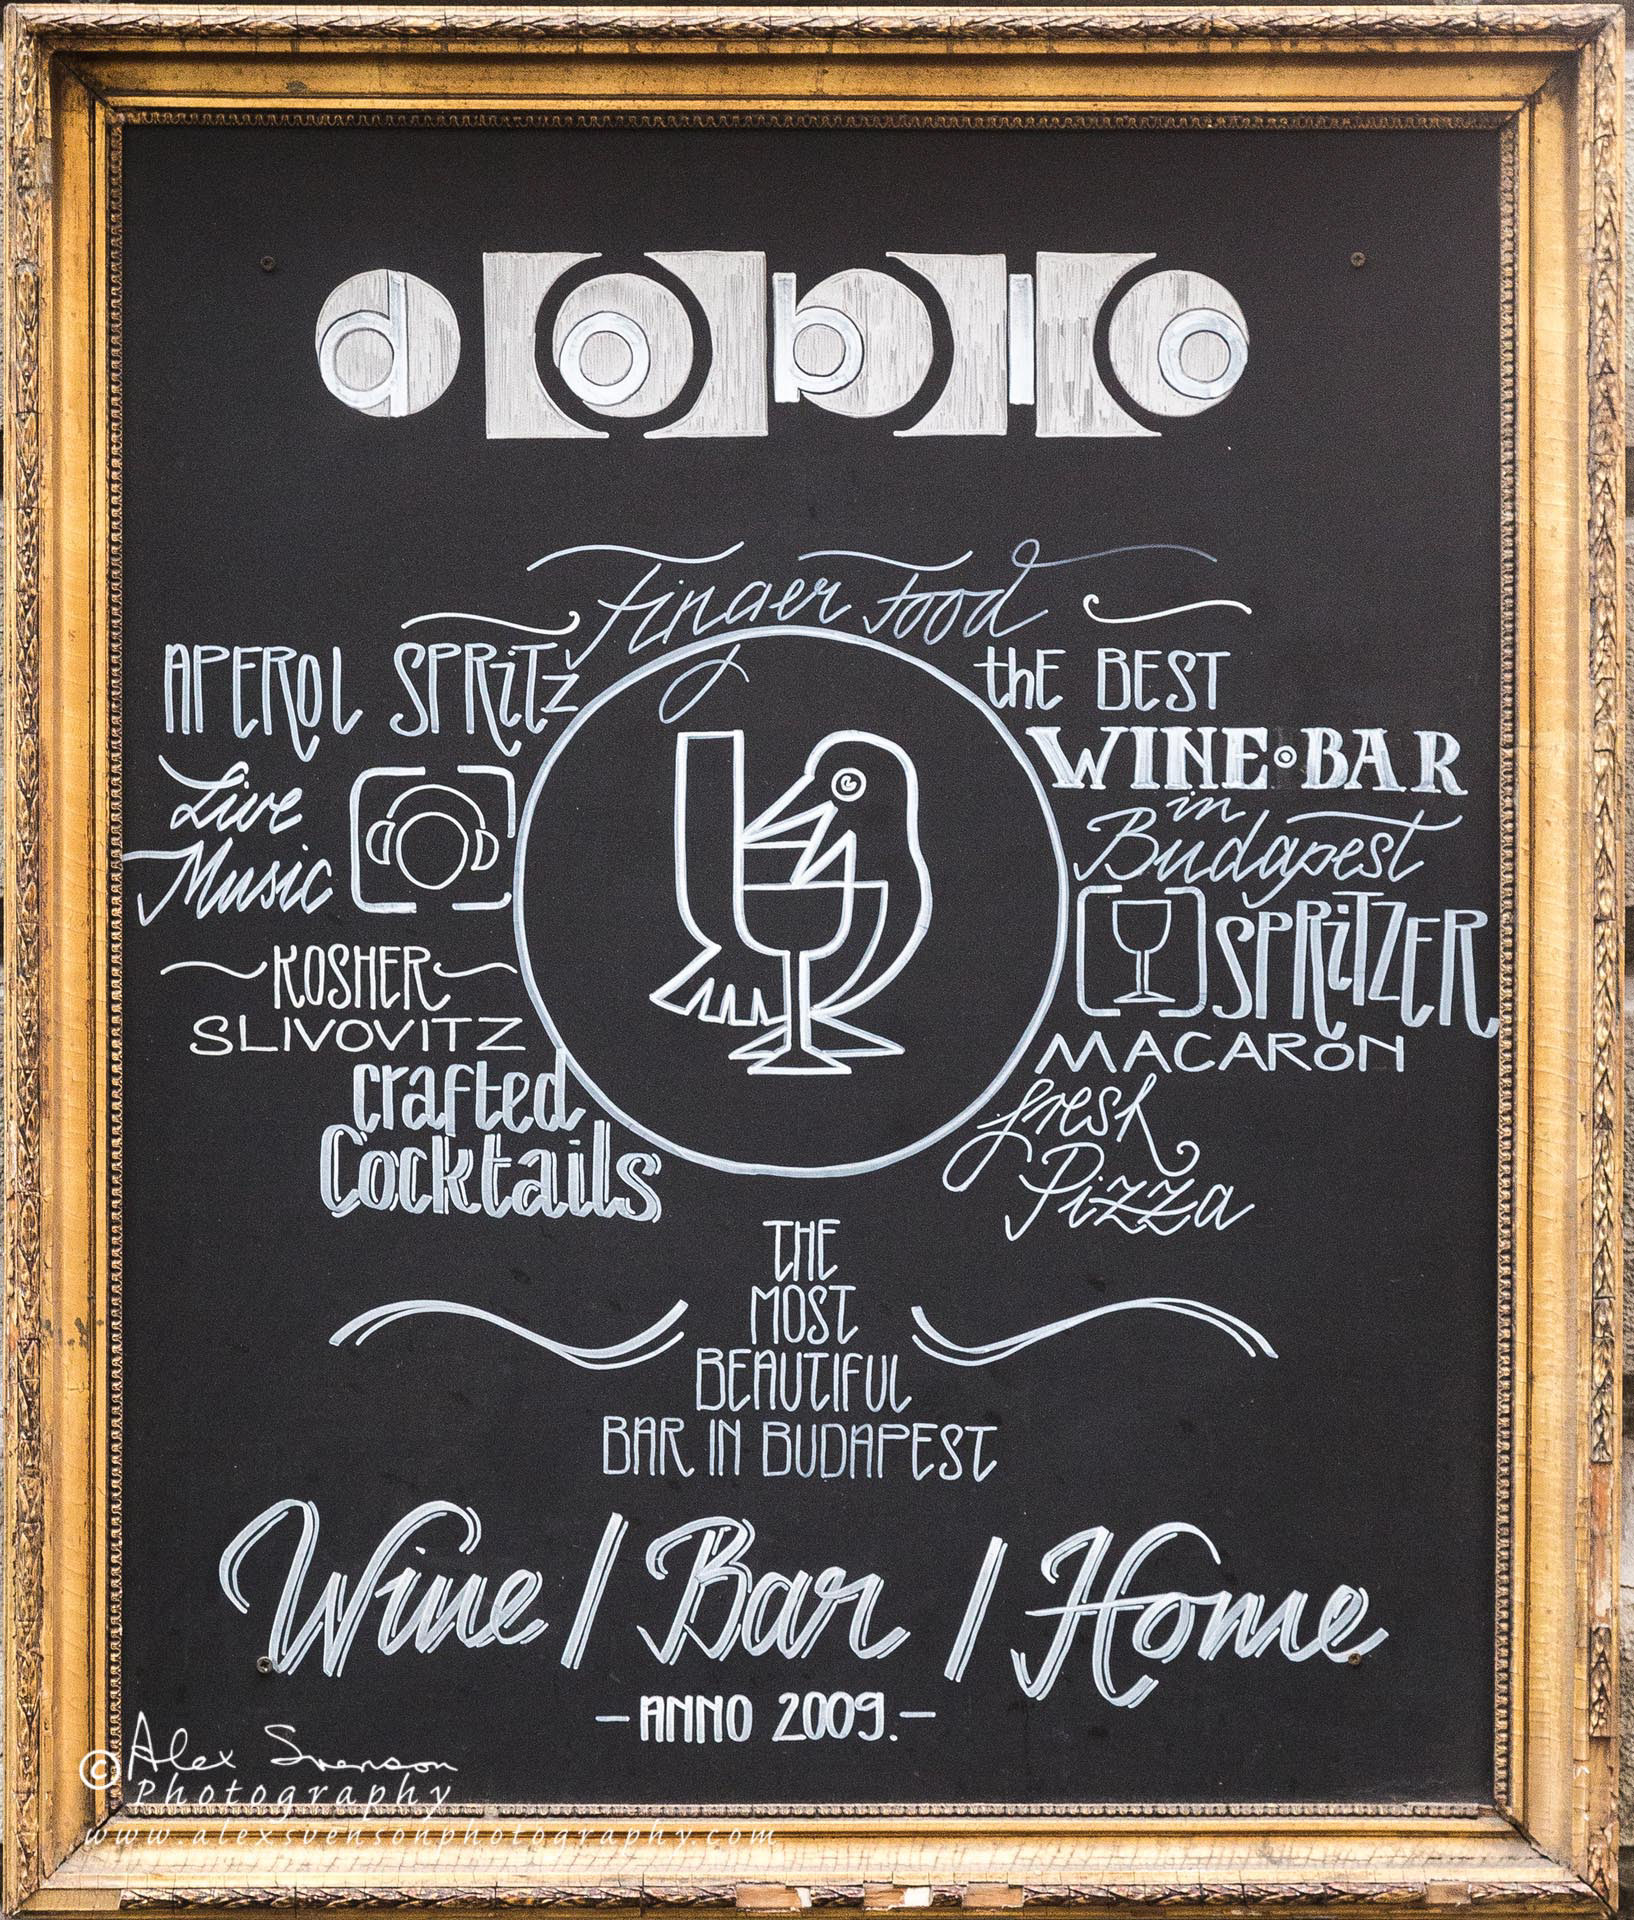 doblo
Finger Food
APEROL SPRiTZ
Live
Music
KOSHER
SLIVOVITZ
crafted
Cocktails
thE BEST
WINE BAR
in
Budapest
SPRiTZER
MACARON
fresh
Pizza
THE
MOST
BEAUTIFUL
BAR IN BUDAPEST
Wine / Bar / Home
- ANNO 2009. -
© Alex Svenson
Photography
www.alexsvensonphotography.com